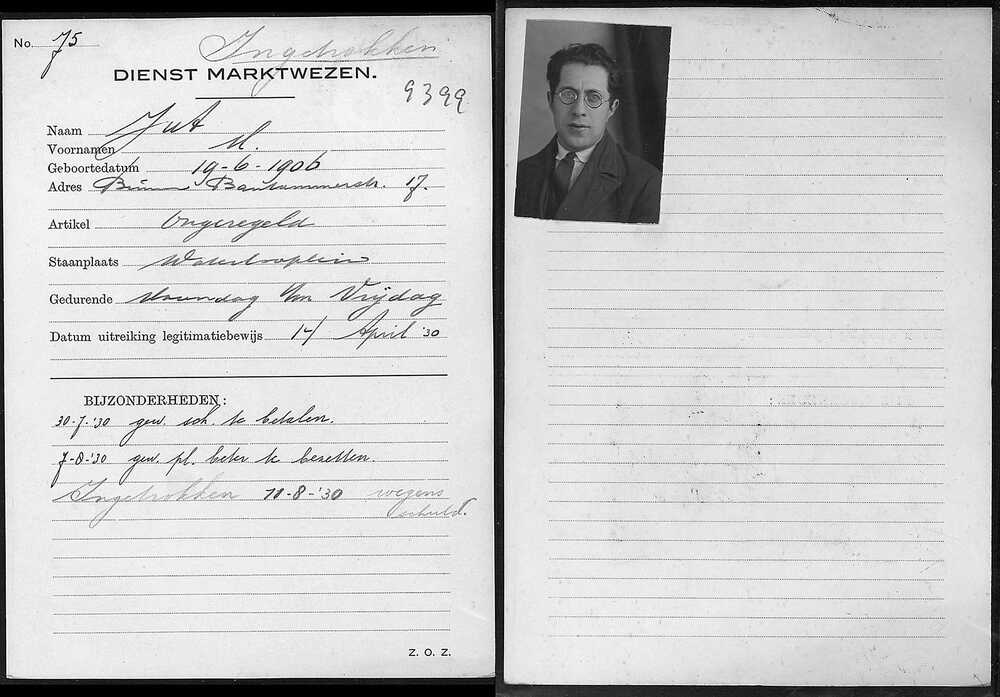 No. 75
Ingetrokken
DIENST MARKTWEZEN.
9399
Naam Jut
Voornamen M.
Geboortedatum 19-6-1906
Adres Bantammerstr. 17.
Artikel Ongeregeld
Staanplaats Waterlooplein
Gedurende Maandag t/m Vrijdag
Datum uitreiking legitimatiebewijs 14 April '30
BIJZONDERHEDEN:
30-7-'30 gew. sch. te betalen.
7-8-'30 gew. pl. beter te bezetten.
Ingetrokken 11-8-'30 wegens
schuld.
Z. O. Z.